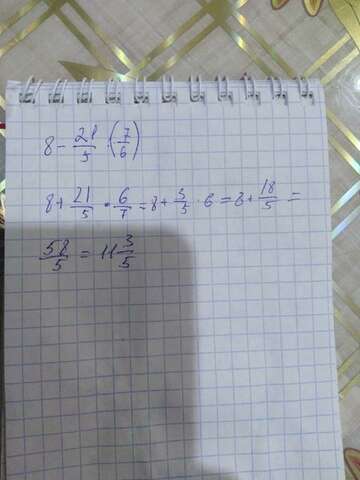 8 - 21/5 · (7/6)
8 + 21/5 · 6/7 = 8 + 3/5 · 6 = 8 + 18/5 =
58/5 = 11 3/5